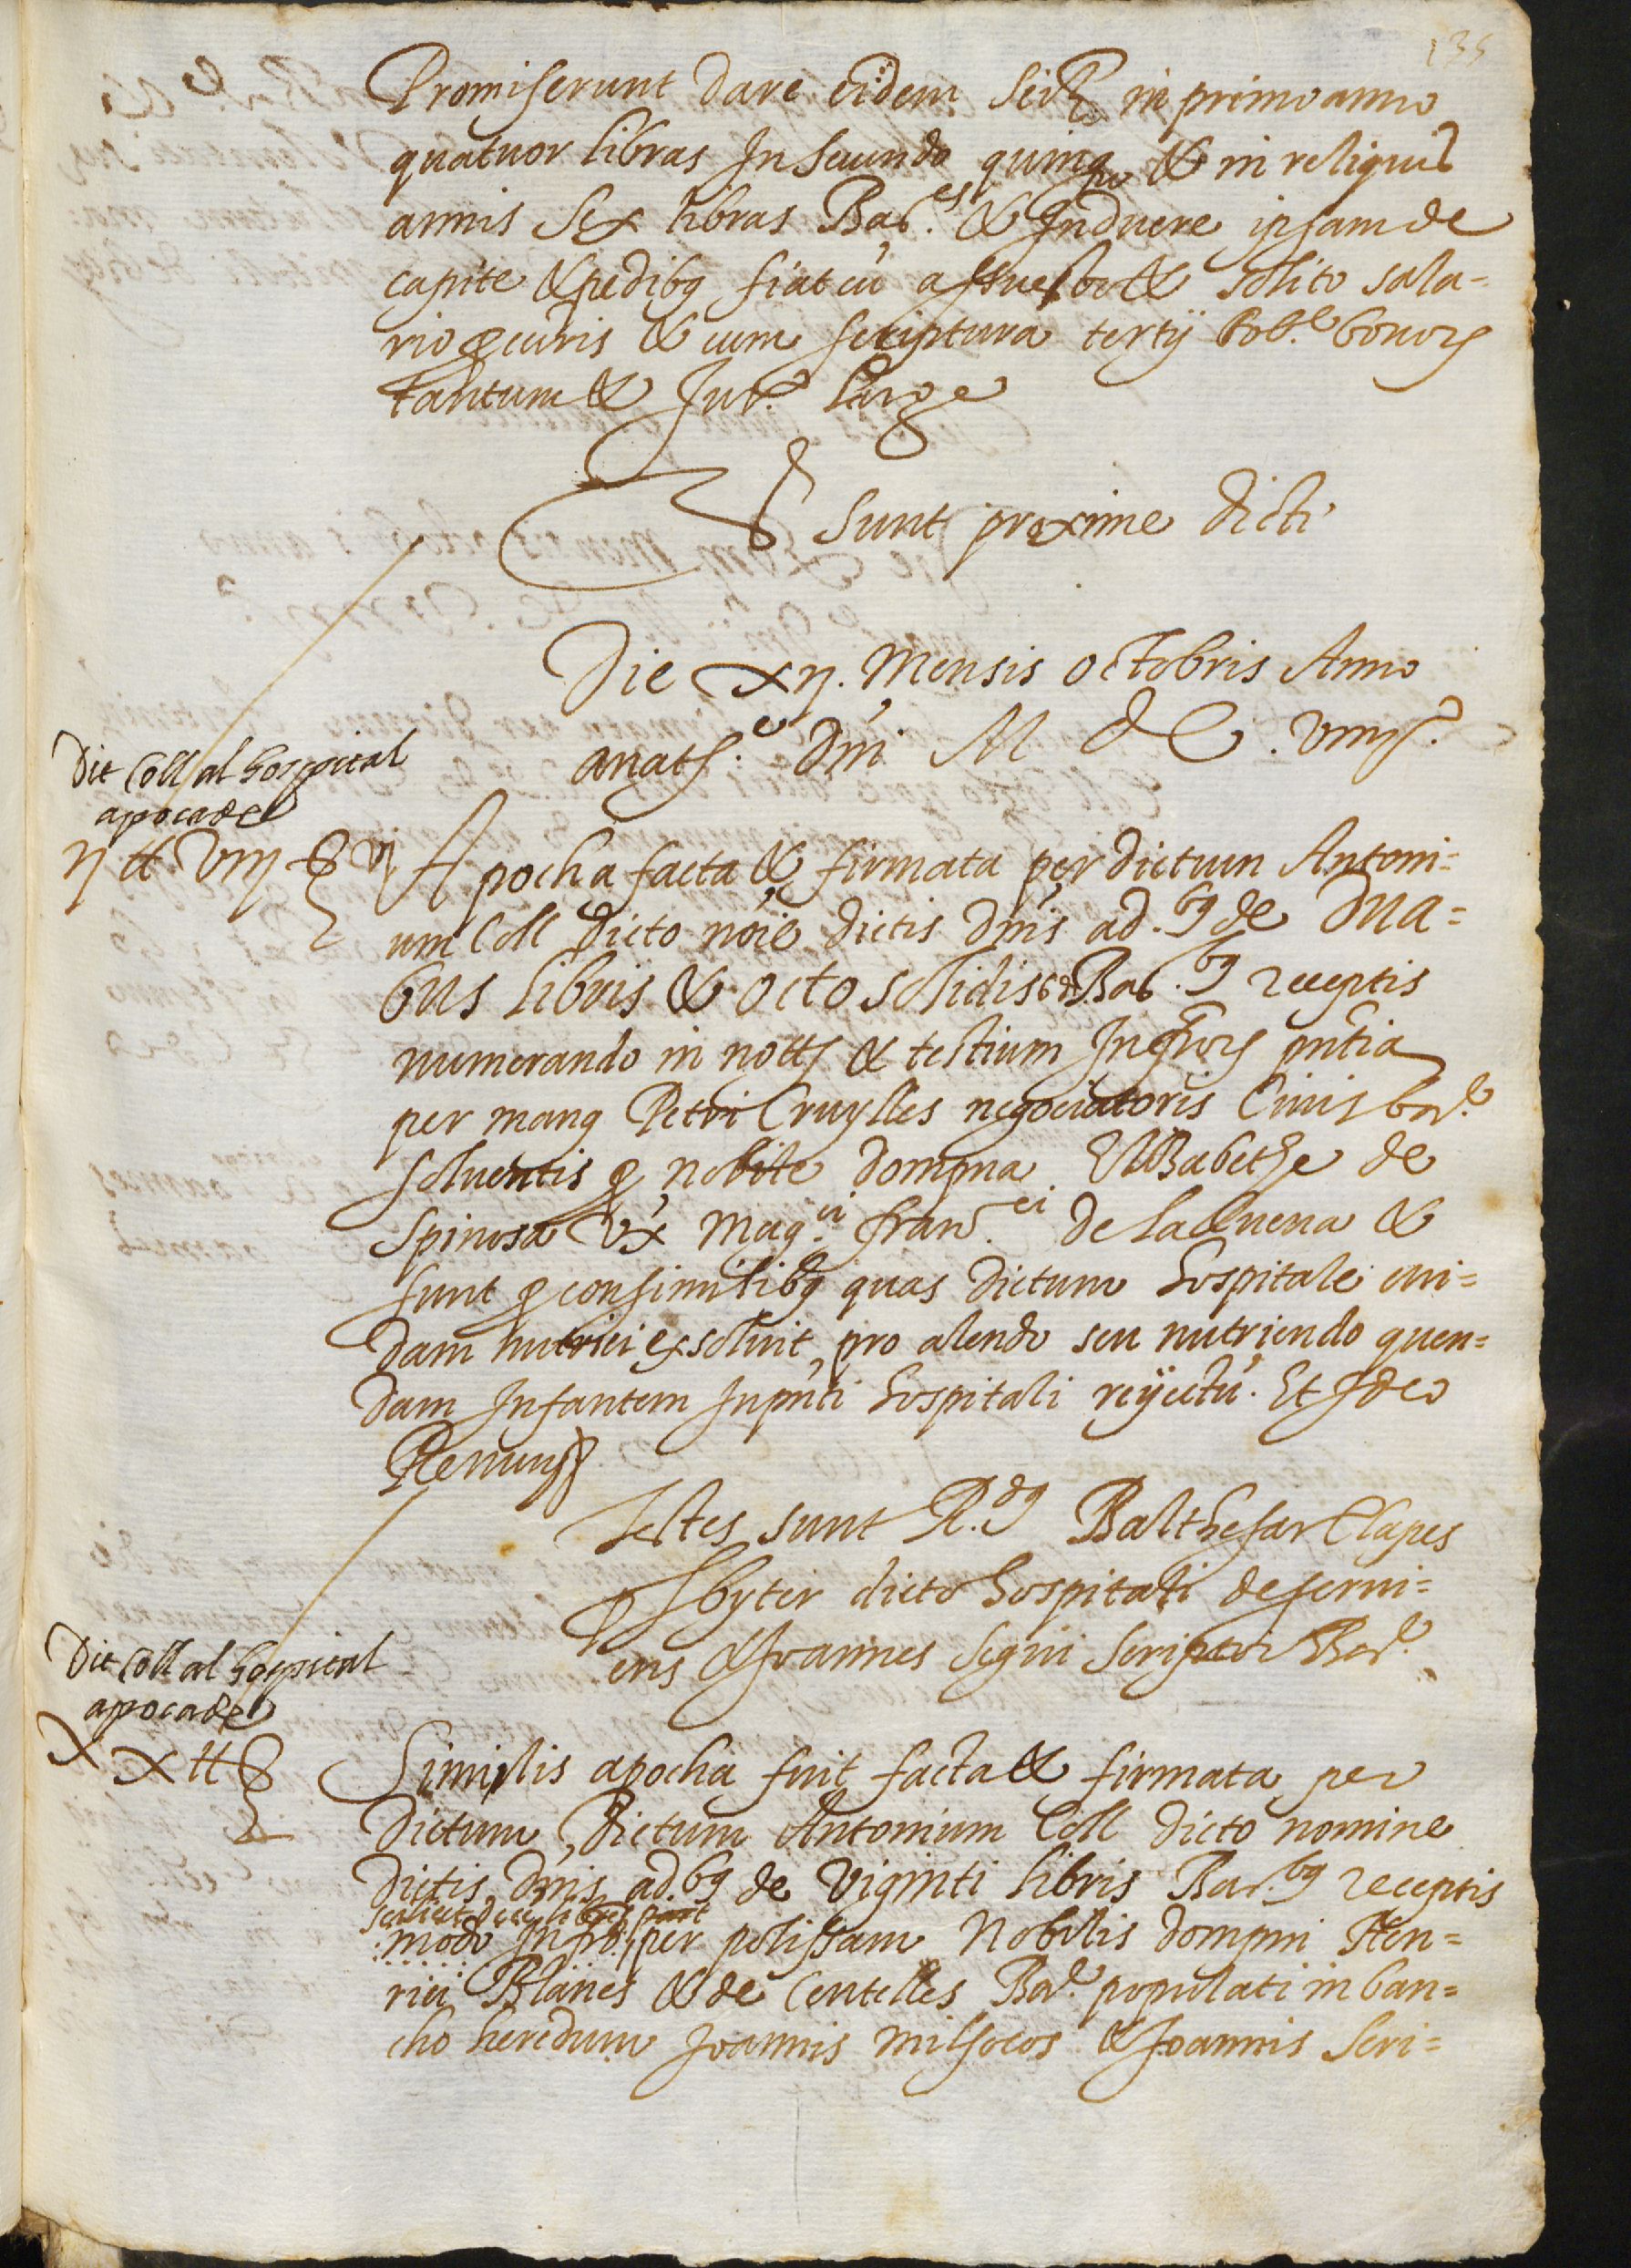 135
Promiserunt dare eidem scil. in primo anno
quatuor libras In secundo quinq̃ & in reliquis
annis sex libras Bar.es & Induere ipsam de
capite & pedibq fiat cũ assueto & solito sala-
rio & cum scriptura tertij bonorꝫ
tantum & Jur. large
T.s sunt proxime dicti
Die xij. Mensis octobris Anno
a natt.e Dñi M DC. viiijº.
Dit Coll al hospital
apoca de
ij ₶ viij ẞ
Apocha facta & firmata per dictum Antoni=
um Coll dicto nõie dictis dñis ad.bq de Dua=
bus libris & octo solidis Bar.bq receptis
numerando in nottꝭ & testium Infrorꝫ pñtia
per manq Petri Cruylles negociatoris Ciuis bar.e
soluentis ꝓ nobile dompna Elisabethe de
Spinosa vx Mag.ci fran.ci de laCuena &
sunt ꝓ consimilibq quas dictum hospitale cui=
dam nutrici exsoluit pro alendo seu nutriendo quen=
dam Infantem In pñti hospitali reijectũ. Et Ideo
Renunꝭ
Testes sunt R.dq Balthesar Clapes
pꝭbyter dicto hospitali deserui=
ens & Joannes Segui scriptor Bar.e
Dit Coll al hospital
apoca de
xx ₶ ẞ
Similis apocha fuit facta & firmata per
dictum, dictum Antonium Coll dicto nomine
dictis dñis ad.bq de viginti libris Bar.bq receptis
modo Infro. per polissam Nobilis dompni Hen=
rici Blanes & de Centelles Bar.e populati in ban=
cho heredum Joannis milsocos & Joannis Seri=